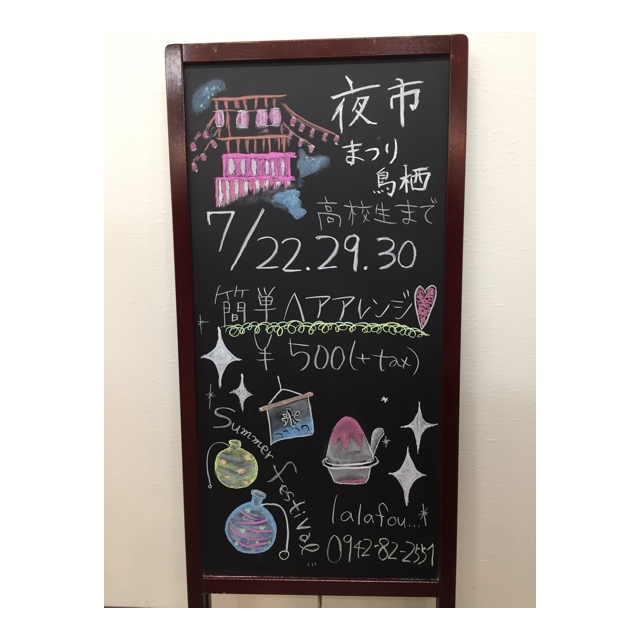 夜市
まつり
鳥栖
高校生まで
7/22.29.30
簡単ヘアアレンジ
¥500(+tax)
氷
Summer festival
lalafou...
0942-82-2551